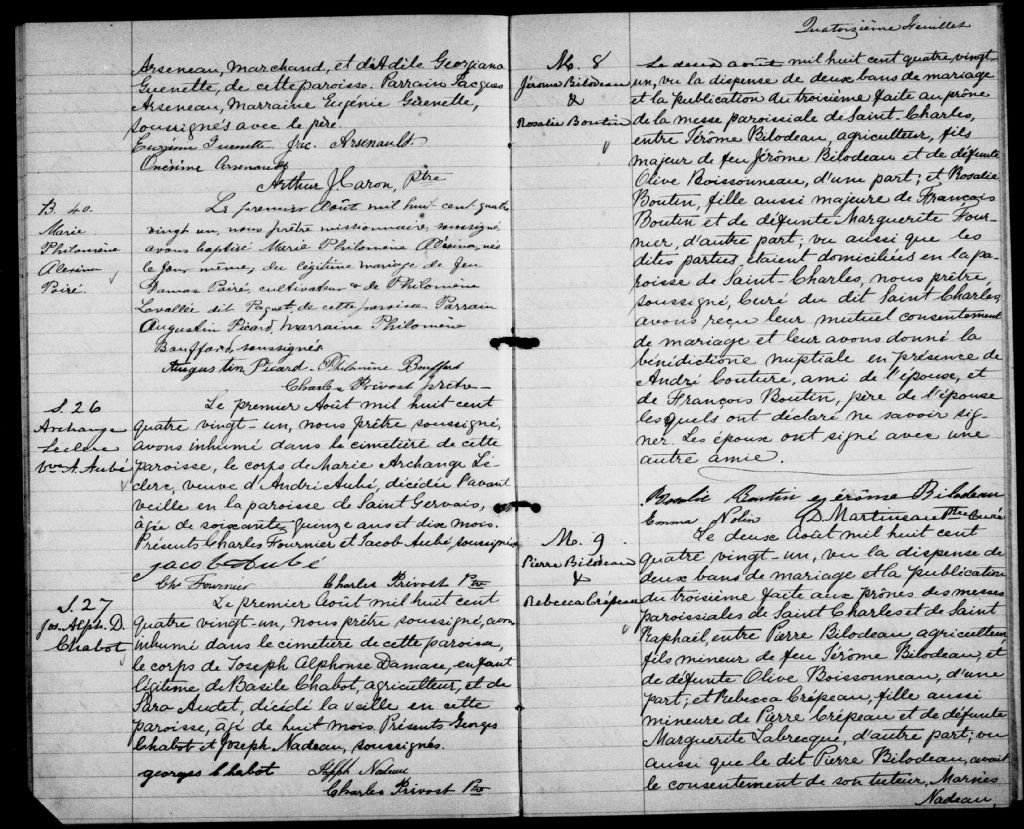 Arseneau, marchand, et d'Adile Georgiana
Guenette, de cette paroisse. Parrain Jacques
Arseneau, Marraine Eugénie Guenette,
soussignés avec le père.
Eugénie Guenette Jac. Arsenault.
Onésime Arsenault
Arthur J. Caron, Ptre
B. 40.
Marie
Philomène
Alexina
Poiré.
Le premier Août mil huit cent quatre
vingt un, nous prêtre missionnaire, soussigné,
avons baptisé Marie Philomène Aléxina, née
le jour même, du légitime mariage de feu
Damas Poiré, cultivateur & de Philomène
Lavallée dit Paquet, de cette paroisse. Parrain
Augustin Picard, marraine Philomène
Bouffard, soussignés.
Augustin Picard. Philomine Bouffart
Charles Privost prêtre
S. 26
Archange
Leclerc
Vve A. Aubé
Le premier Août mil huit cent
quatre vingt-un, nous prêtre soussigné,
avons inhumé dans le cimetière de cette
paroisse, le corps de Marie Archange Lé-
clerc, veuve d'André Aubé, décédée l'avant
veille en la paroisse de Saint Gervais,
âgée de soixante quinze ans et dix mois.
Présents Charles Fournier et Jacob Aubé, soussignés
jacob Aubé
Chs Fournier Charles Privost Ptre
S. 27
Jos. Alph. D.
Chabot
Le premier Août mil huit cent
quatre vingt-un, nous prêtre soussigné, avons
inhumé dans le cimetière de cette paroisse,
le corps de Joseph Alphonse Damase, enfant
légitime de Basile Chabot, agriculteur, et de
Sara Audet, décédé la veille en cette
paroisse, âgé de huit mois. Présents Georges
Chabot et Joseph Nadeau, soussignés.
georges Chabot Joseph Nadeau
Charles Privost Ptre
Quatorzième Feuillet
M. 8
Jérôme Bilodeau
&
Rosalie Boutin
Le deux août mil huit cent quatre vingt-
un, vu la dispense de deux bans de mariage
et la publication du troisième faite au prône
de la messe paroissiale de Saint-Charles,
entre Jérôme Bilodeau, agriculteur, fils
majeur de feu Jérôme Bilodeau et de défunte
Olive Boissonneau, d'une part; et Rosalie
Boutin, fille aussi majeure de François
Boutin et de défunte Marguerite Four-
nier, d'autre part; vu aussi que les
dites parties étaient domiciliées en la pa-
roisse de Saint-Charles, nous prêtre,
soussigné, Curé du dit Saint Charles,
avons reçu leur mutuel consentement
de mariage et leur avons donné la
bénédictione nuptiale en présence de
André Couture, ami de l'épouse, et
de François Boutin, père de l'épouse
lesquels ont déclaré ne savoir sig-
ner. Les époux ont signé avec une
autre amie.
Rosalie Boutin jérôme Bilodeau
Emma Nolin D. Martineau Ptre Curé
M. 9.
Pierre Bilodeau
&
Rebecca Crépeau
Le deux Août mil huit cent
quatre vingt-un, vu la dispense de
deux bans de mariage et la publication
du troisième faite aux prônes des messes
paroissiales de Saint Charles et de Saint
Raphaël, entre Pierre Bilodeau, agriculteur,
fils mineur de feu Jérôme Bilodeau, et
de défunte Olive Boissonneau, d'une
part; et Rebecca Crépeau, fille aussi
mineure de Pierre Crépeau et de défunte
Marguerite Labrecque, d'autre part; vu
aussi que le dit Pierre Bilodeau, avait
le consentement de son tuteur,
Nadeau,